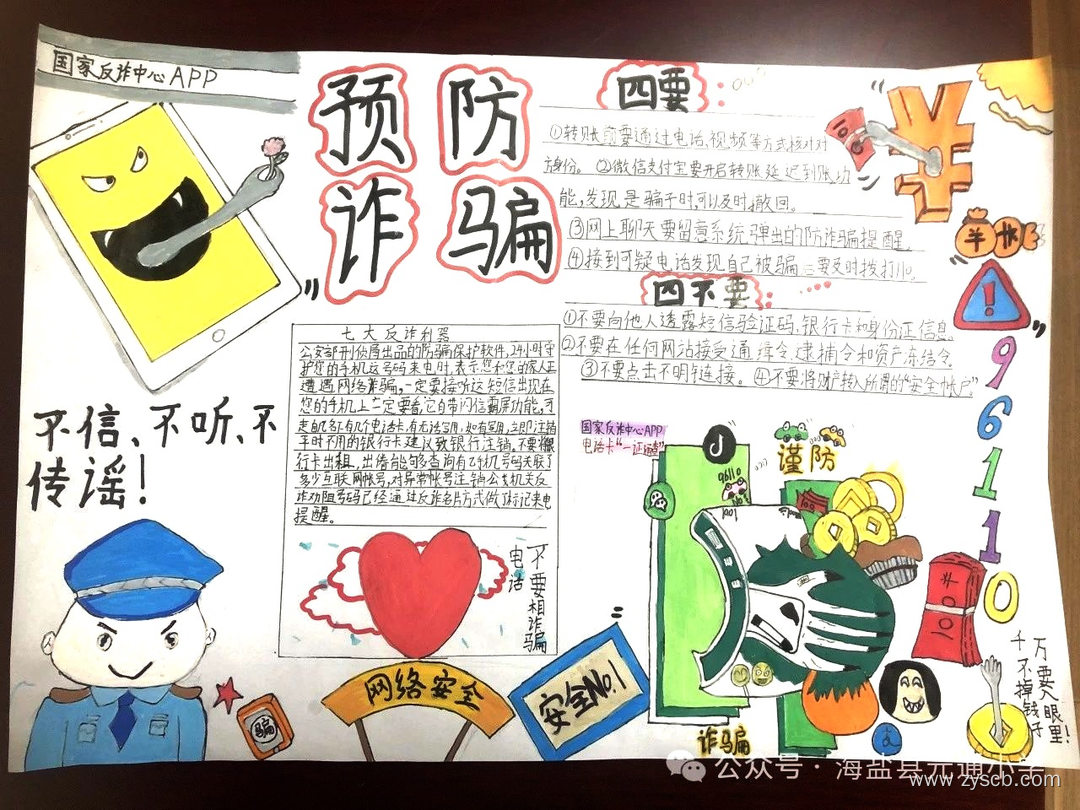 国家反诈中心APP
预防
诈骗
四要:
①转账前要通过电话、视频等方式核对对
方身份。②微信支付宝要开启转账延迟到账功
能,发现是骗子时,可以及时撤回。
③网上聊天要留意系统弹出的防诈骗提醒。
④接到可疑电话发现自己被骗 要及时拨打110。
四不要
①不要向他人透露短信验证码、银行卡和身份证信息。
②不要在任何网站接受通缉令、逮捕令和资产冻结令。
③不要点击不明链接。④不要将财产转入所谓的“安全帐户”
96110
七大反诈利器
公安部刑侦局出品的防骗保护软件,24小时守
护您的手机这号码来电时,表示您和您的家人正
遭遇网络诈骗,一定要接听这短信出现在
您的手机上一定要看,它自带闪信霸屏功能,可
平时不用的银行卡建议致银行注销。不要将银
行卡出租,出借能够多查询有手机号码关联了
多少互联网帐号,对异常帐号注销公安机关反
诈劝阻号码已经通过反诈名片方式做标记来电
提醒。
不信、不听、不
传谣!
不要相诈骗
电话
国家反诈中心APP
电话卡“一证通查”
谨防
诈骗
网络安全
安全No.1
骗
100
千万不要
掉入钱眼
子里!
公众号·海盐县元通小学
www.zyscb.com